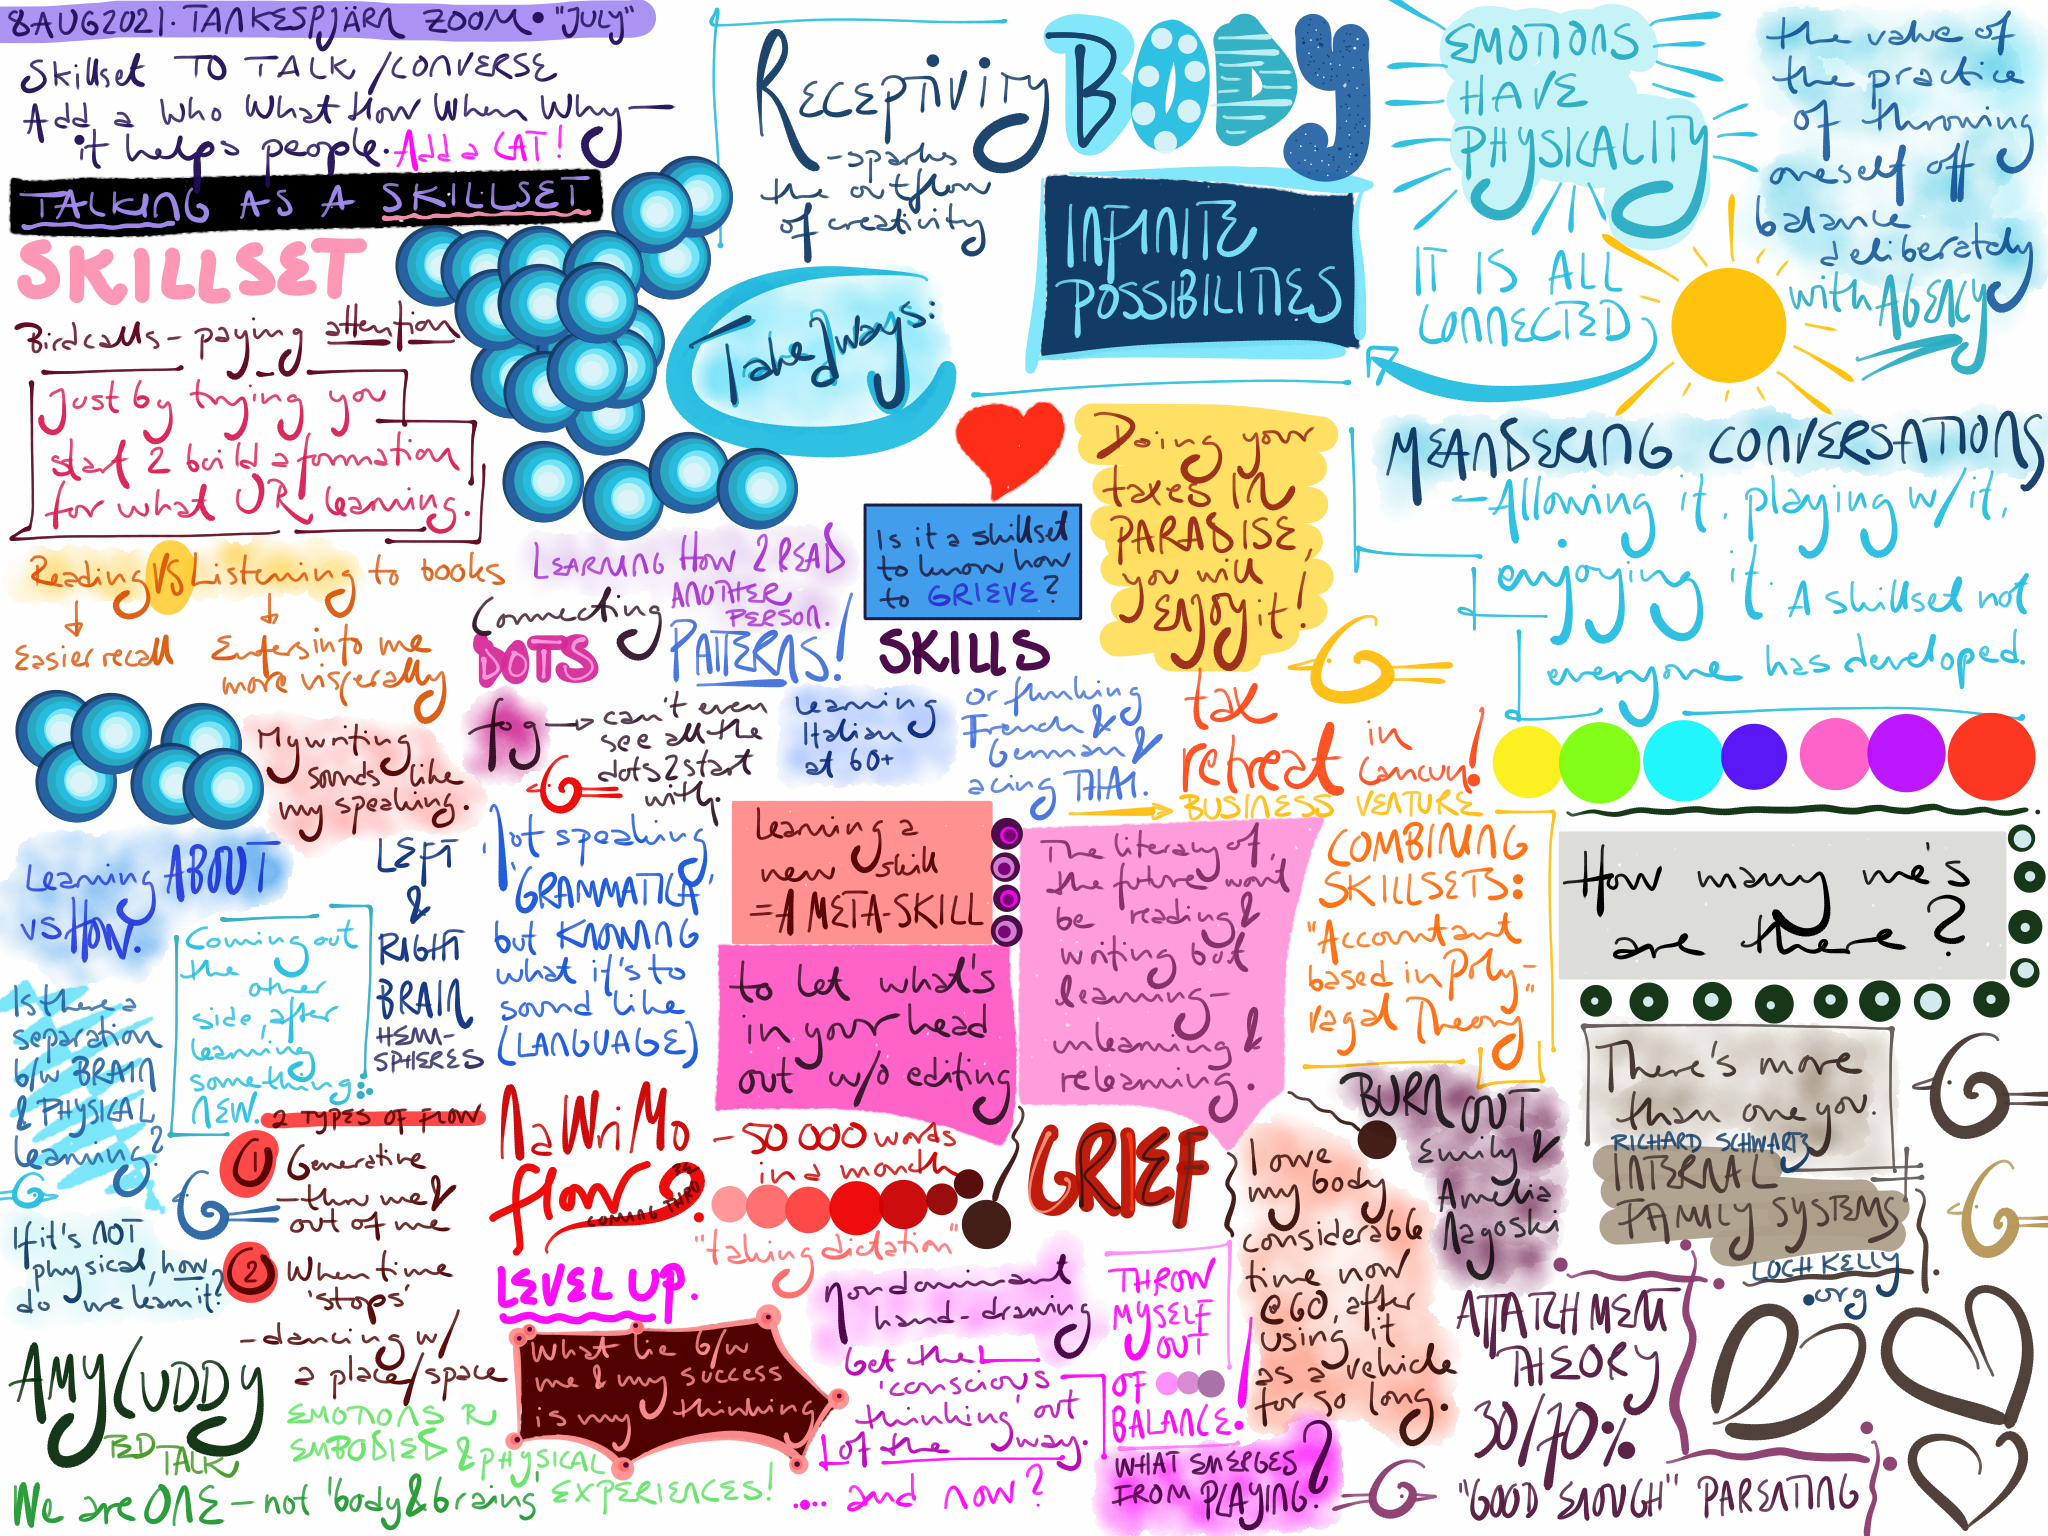 8 AUG 2021. TANKESPJÄRN ZOOM • "JULY"
Skillset TO TALK / CONVERSE
Add a Who What How When Why —
it helps people. Add a CAT!
TALKING AS A SKILLSET
SKILLSET
Birdcalls – paying attention
Just by trying you
start 2 build a formation
for what UR learning.
Reading VS Listening to books
Easier recall
Enters into me
more viscerally
My writing
sounds like
my speaking.
Learning ABOUT
vs HOW.
Is there a
separation
b/w BRAIN
& PHYSICAL
learning?
If it's NOT
physical, how
do we learn it?
Coming out
the other
side, after
learning
something
NEW.
LEFT
&
RIGHT
BRAIN
HEMI-
SPHERES
2 TYPES OF FLOW
1 Generative
– thru me &
out of me
2 When time
'stops'
– dancing w/
a place / space
AMY CUDDY
TED TALK
EMOTIONS R
EMBODIED & PHYSICAL
EXPERIENCES!
We are ONE – not 'body & brains'
Receptivity
– sparks
the outflow
of creativity
BODY
INFINITE
POSSIBILITIES
Take Aways:
EMOTIONS
HAVE
PHYSICALITY
IT IS ALL
CONNECTED
the value of
the practice
of throwing
oneself off
balance
deliberately
with AGENCY
LEARNING HOW 2 READ
ANOTHER
PERSON.
Connecting
DOTS
PATTERNS!
fog → can't even
see all the
dots 2 start
with.
Is it a skillset
to know how
to GRIEVE?
SKILLS
Learning
Italian
at 60+
or flunking
French &
German &
acing THAT.
Doing your
taxes IN
PARADISE,
you will
enjoy it!
tax
retreat in
Cancun!
BUSINESS VENTURE
MEANDERING CONVERSATIONS
– Allowing it, playing w/ it,
enjoying it. A skillset not
everyone has developed.
Not speaking
'GRAMMATICA'
but KNOWING
what it's to
sound like
(LANGUAGE)
Learning a
new skill
= A META-SKILL
to let what's
in your head
out w/o editing
The literacy of
the future won't
be reading &
writing but
learning –
unlearning &
relearning.
COMBINING
SKILLSETS:
"Accountant
based in Poly-
vagal Theory"
How many me's
are there?
There's more
than one you.
RICHARD SCHWARTZ
INTERNAL
FAMILY SYSTEMS
LOCH KELLY
.org
NaWriMo – 50 000 words
in a month
flow
COMING THRU
"taking dictation"
LEVEL UP.
What lie b/w
me & my success
is my thinking
GRIEF
BURN OUT
Emily &
Amelia
Nagoski
I owe
my body
considerable
time now
@ 60, after
using it
as a vehicle
for so long.
Nondominant
hand-drawing
Get the
'conscious
thinking' out
of the way.
.... and now?
THROW
MYSELF
OUT
OF
BALANCE!
WHAT EMERGES
FROM PLAYING?
ATTATCHMENT
THEORY
30/70%
"GOOD ENOUGH" PARENTING